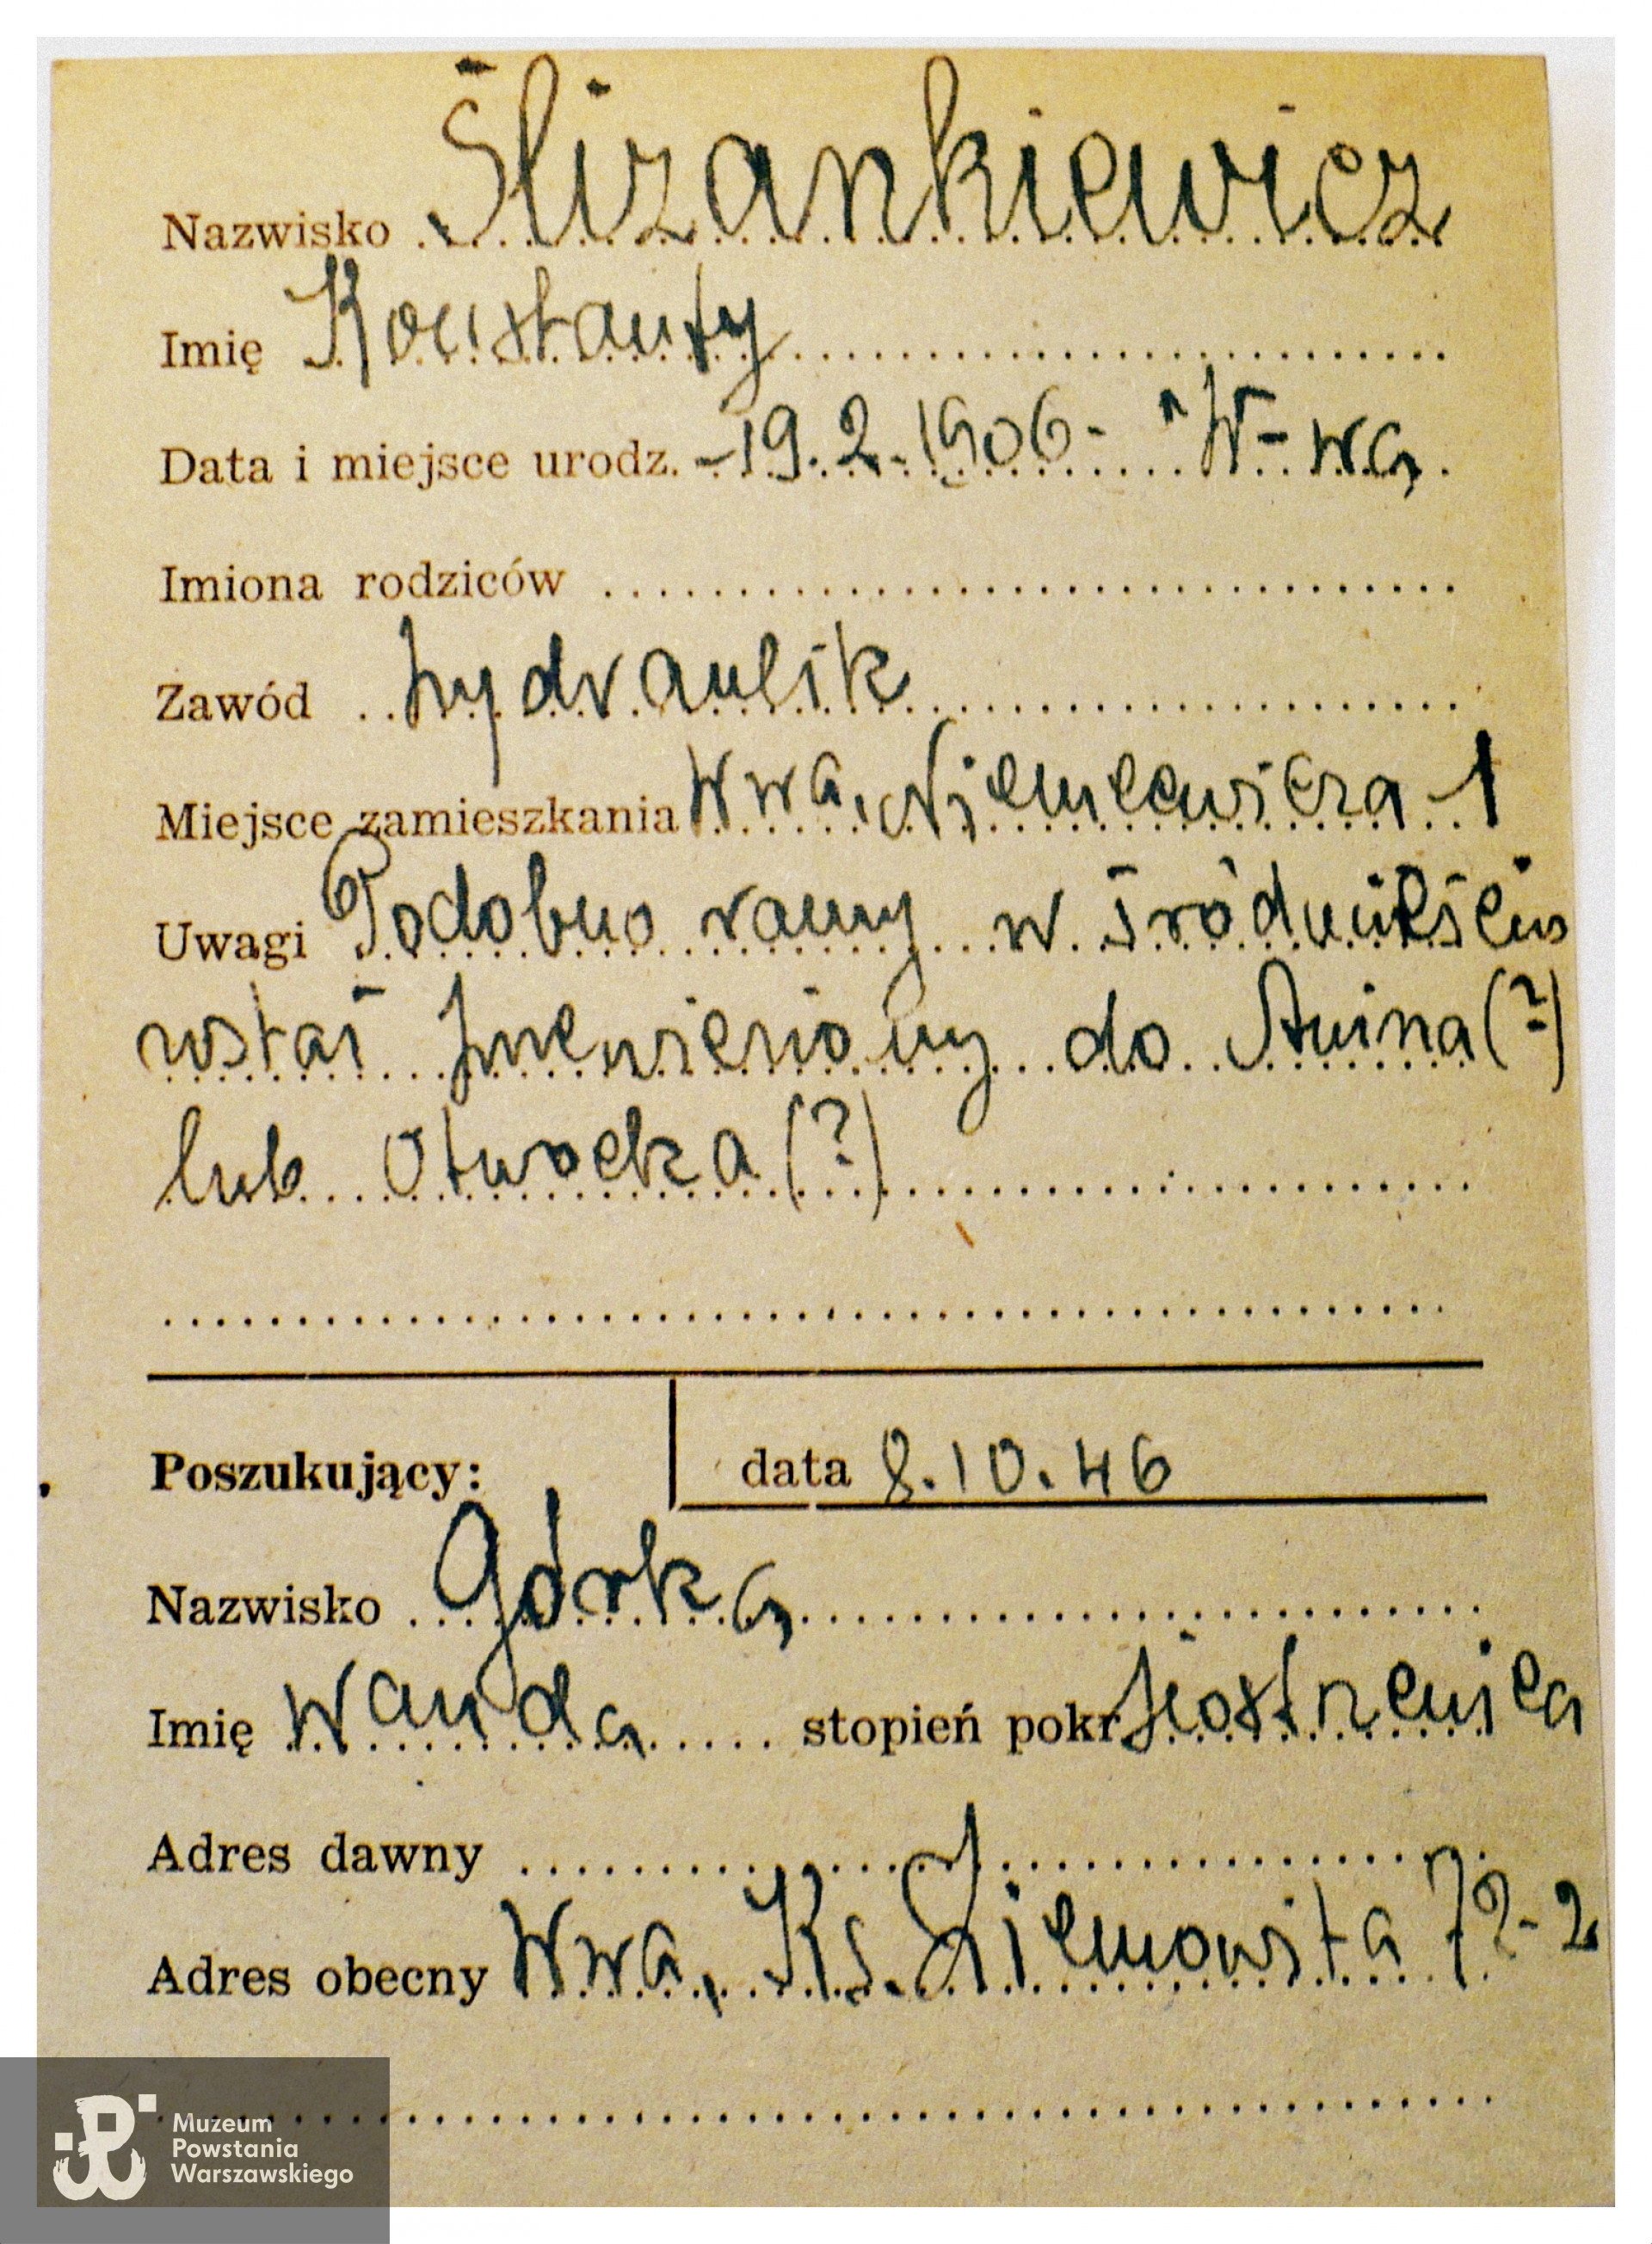 Nazwisko Ślizankiewicz
Imię Konstanty
Data i miejsce urodz. - 19.2.1906 - W-wa
Imiona rodziców
Zawód hydraulik
Miejsce zamieszkania Wwa, Niemcewicza 1
Uwagi Podobno ranny w śródmieściu
został przewieziony do Anina (?)
lub Otwocka (?)
Poszukujący: data 8.10.46
Nazwisko Górka
Imię Wanda stopień pokr. siostrzenica
Adres dawny
Adres obecny Wwa, Ks. Ziemowita 72-2
Muzeum
Powstania
Warszawskiego